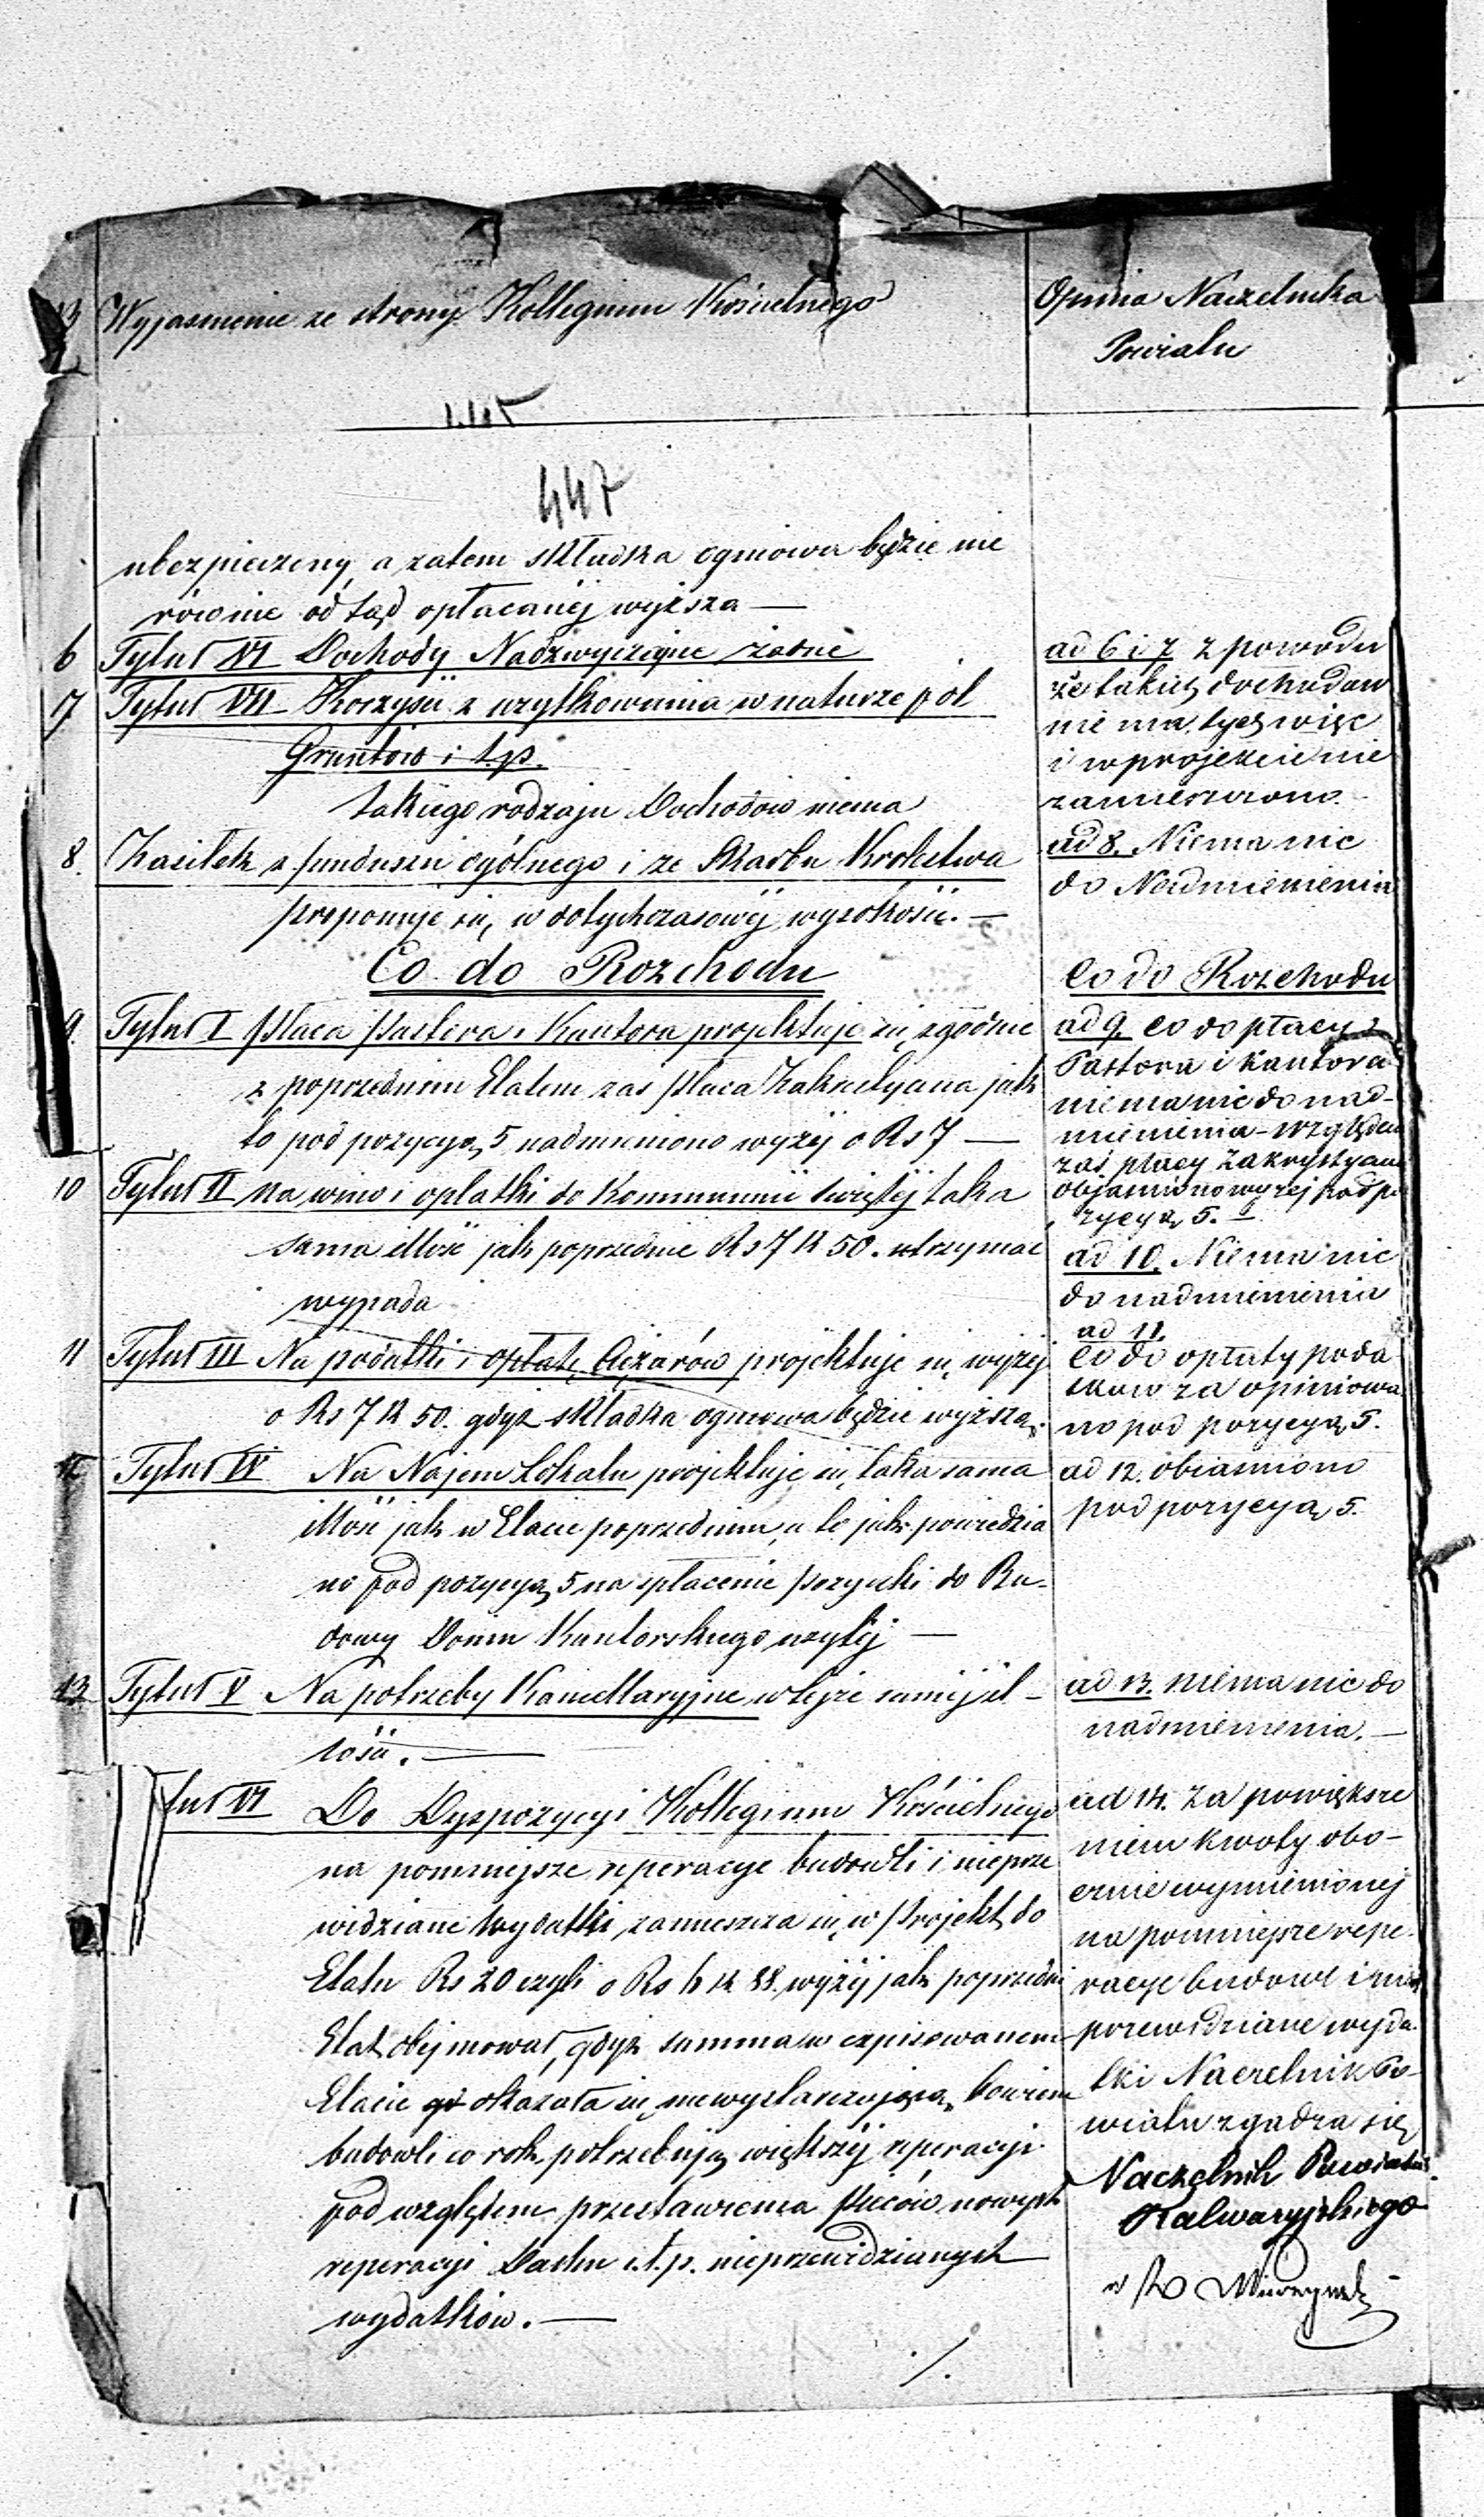 Wyjasnienie ze strony Kollegium Kościelnego
447
ubezpieczony, a zatem składka ogniowa będzie nie
równie od tąd opłacanéj wyższa —
6 Tytuł VI Dochody Nadzwyczajne żadne
7 Tytuł VII Korzyści z użytkowania w naturze pól
Gruntów i t.p.
takiego rodzaju Dochodow niema
8. Zasiłek z funduszu ogólnego i ze Skarbu Krolestwa
proponuje się w dotychczasowéj wysokości. —
Co do Rozchodu
9. Tytuł I Płaca Pastora i Kantora projektuje się zgodnie
z poprzednim Etatem zaś płaca Zakrystyana jak
to pod pozycyą 5 nadmieniono wyżéj o Rs 7 —
10 Tytuł II na wino i opłatki do Kommunii świętéj taka
sama ilość jak poprzednie Rs 7 K 50. utrzymac
wypada
11 Tytuł III Na podatki i opłatę Ciężarów projektuje się wyżéj
o Rs 7 K 50. gdyż składka ogniowa będzie wyższą.
12 Tytuł IV Na Najem Lokalu projektuje się taka sama
ilość jak w Etacie poprzednim, a to jak powiedzia
no pod pozycyą 5 na spłacenie pożyczki do Bu-
dowy Domu Kantorskiego użytéj —
13 Tytuł V Na potrzeby Kancellaryjne w tejże saméj il-
lości. —
tuł VI Do Dyspozycyi Kollegium Kościelnego
na pomniejsze reperacye budowli i nieprze
widziane wydatki zamieszcza się w Projekt do
Etatu Rs 20 czyli o Rs K 88. wyżéj jak poprzedni
Etat obejmował, gdyż summa w expisowanem
Etacie okazała się niewystarczającą, bowiem
budowle co rok potrzebują większéj reperacyi
pod względem przestawienia pieców nowych
reperacyi Dachu i t.p. nieprzewidzianych
wydatków. —
./.
Opinia Naczelnika
Powiatu
ad 6 i 7 z powodu
że takich dochodow
nie ma, tych więc
i w projekcie nie
zamieszczono.
ad 8. Niema nic
do Nadmienienia
Co do Rozchodu
ad 9. co do płacy
Pastora i Kantora
niema nic do nad-
mienienia - względem
zaś płacy Zakrystyana
objasniono wyżej pod po
zycyą 5. —
ad 10. Niema nic
do nadmienienia
ad 11.
co do opłaty poda
tkow za opiniowa
no pod pozycyą 5.
ad 12. obiasniono
pod pozycyą 5.
ad 13. niema nic do
nadmienienia. —
ad 14. Za powiększe
niem kwoty obo-
cznie wymienionej
na pomniejsze repe-
racye budowl i nie
przewidziane wyda-
tki Naczelnik Po-
wiatu zgadza się
Naczelnik Powiatu
Kalwaryjskiego